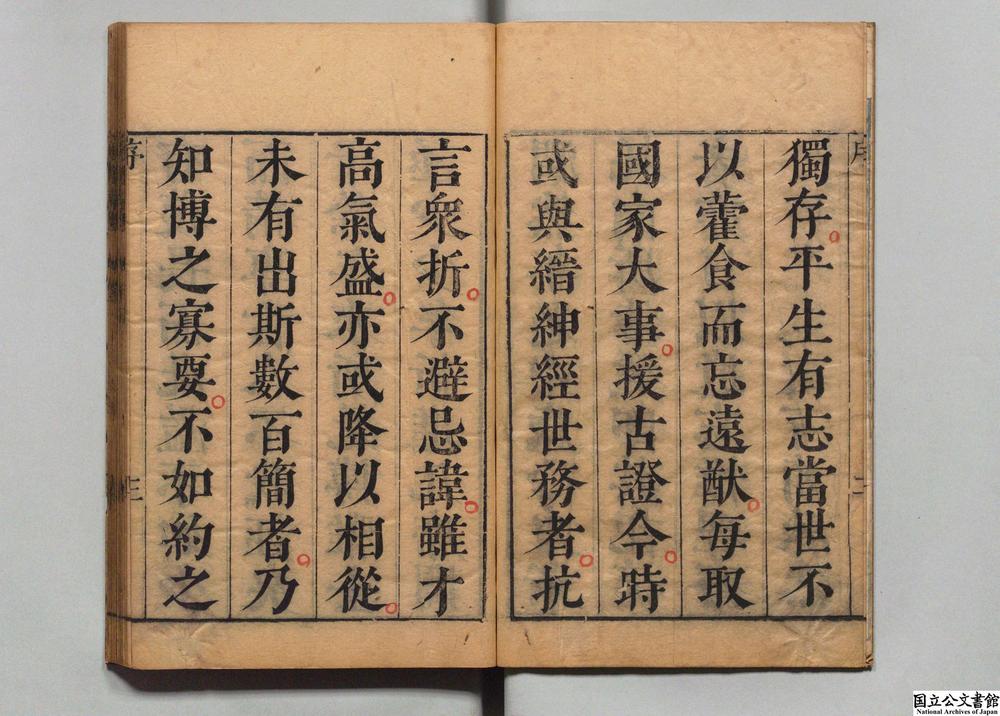 獨存平生有志當世不
以藿食而忘遠猷每取
國家大事援古證今時
或與縉紳經世務者抗
言衆折不避忌諱雖才
高氣盛亦或降以相從
未有出斯數百簡者乃
知博之寡要不如約之
序
三
国立公文書館
National Archives of Japan